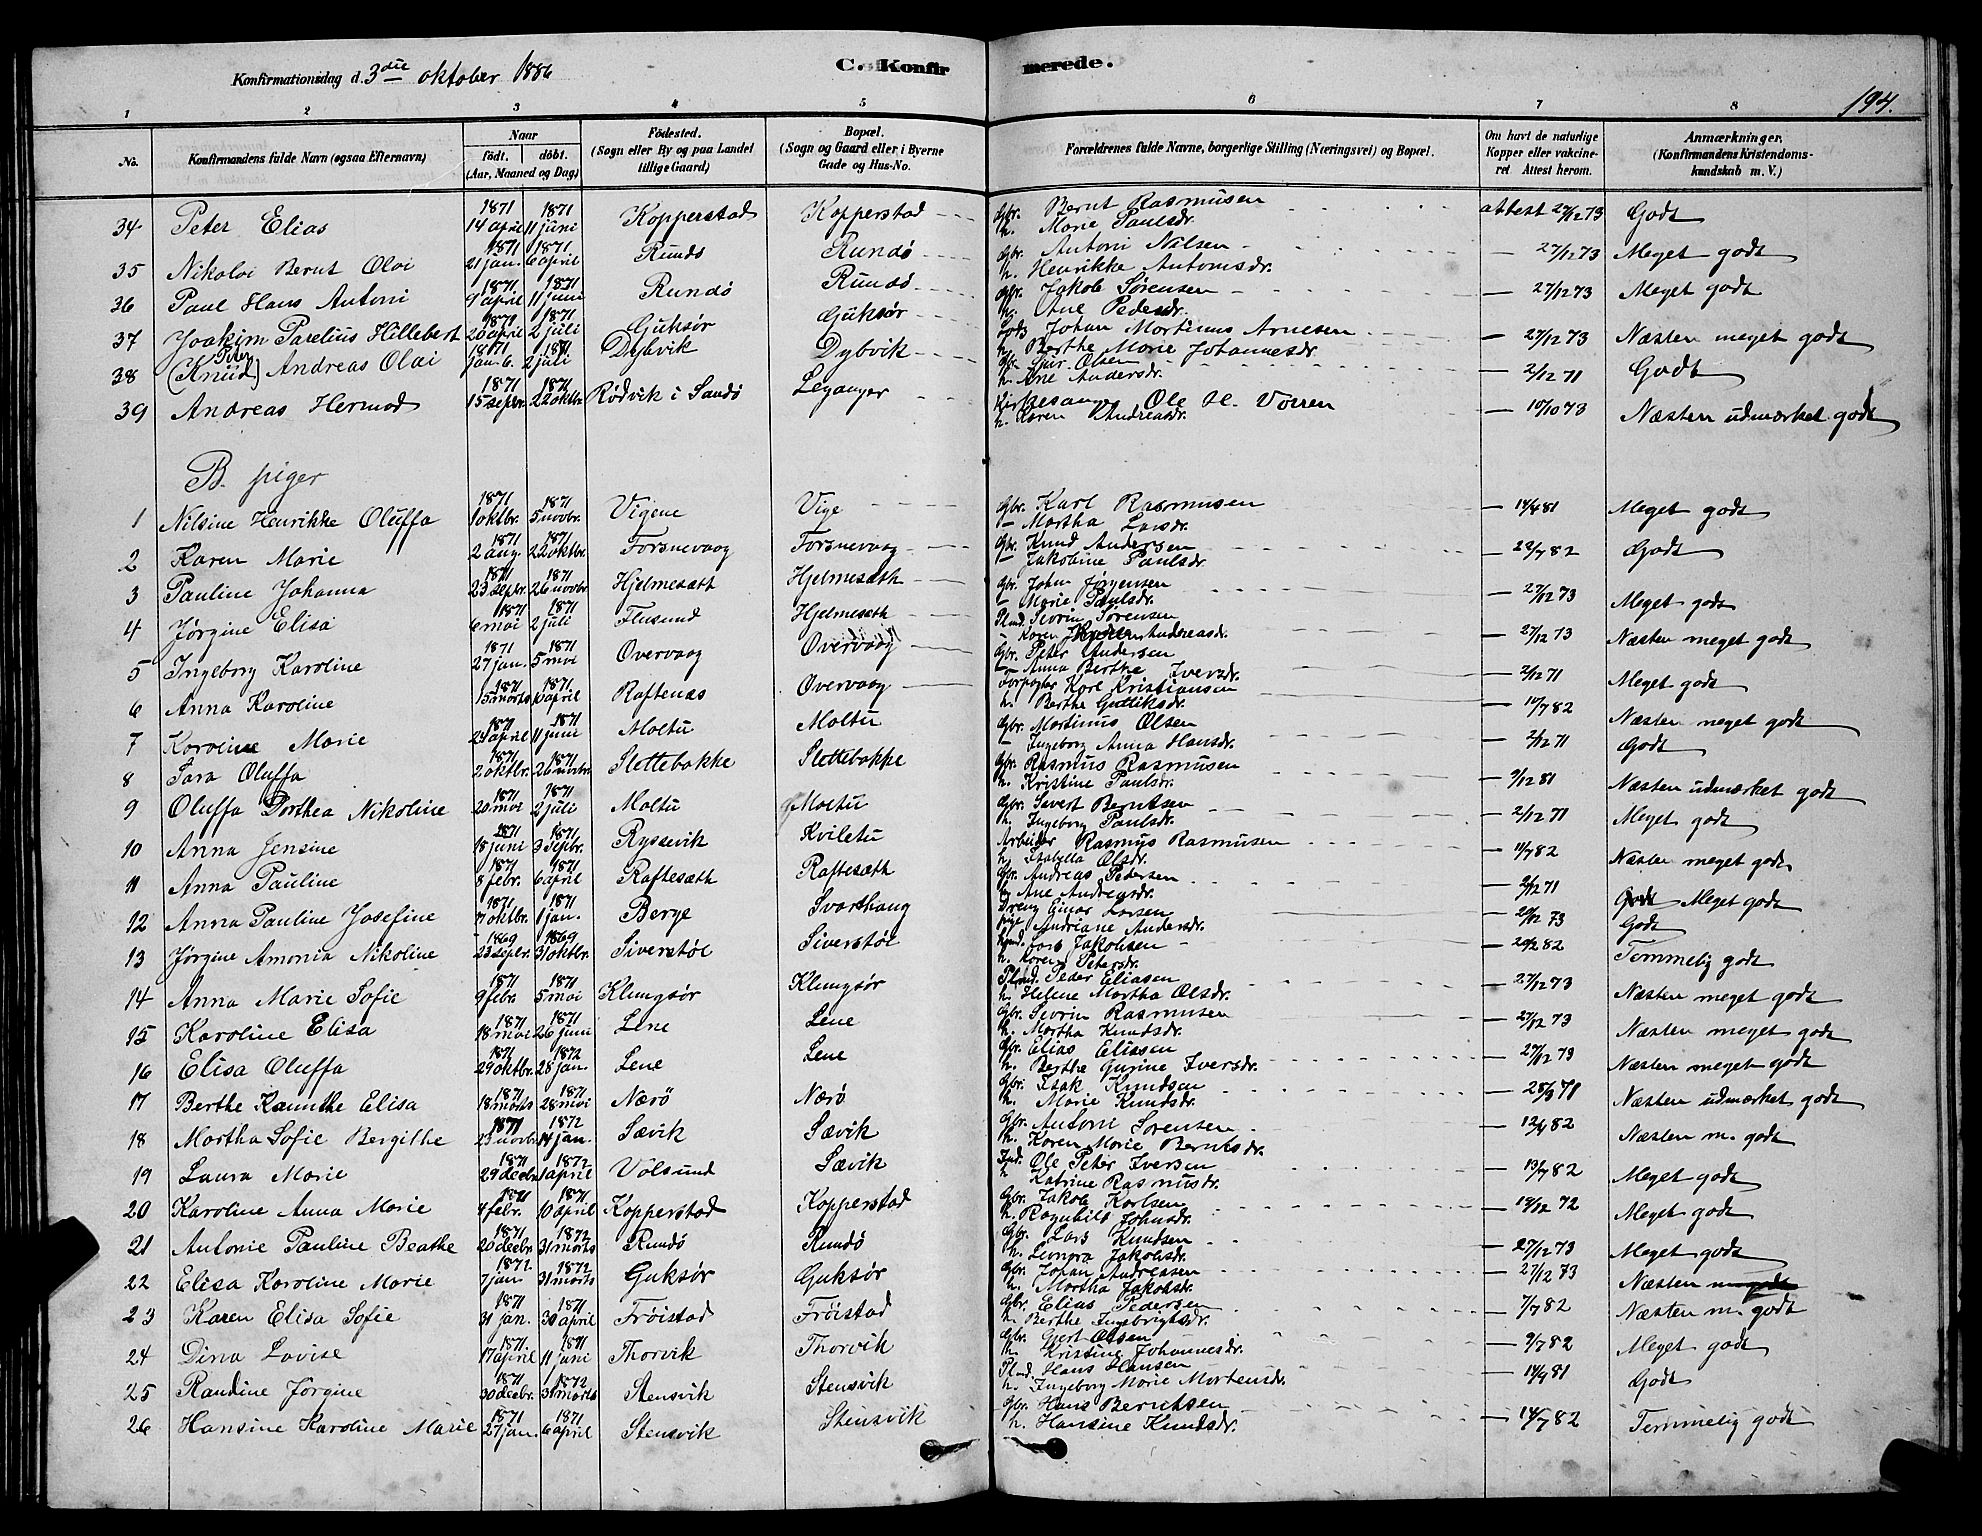 Konfirmationsdag d. 3die oktober 1886
C. Konfirmerede.
194.
1 2 3 4 5 6 7 8
No. Konfirmandens fulde Navn (ogsaa Efternavn) Naar født. døbt. (Aar, Maaned og Dag) Fødested. (Sogn eller By og paa Landet tillige Gaard) Bopæl. (Sogn og Gaard eller i Byerne Gade og Hus-No. Forældrenes fulde Navne, borgerlige Stilling (Næringsvei) og Bopæl. Om havt de naturlige Kopper eller vakcineret Attest herom. Anmærkninger. (Konfirmandens Kristendomskundskab m. V.)
34 Peter Elias 1871 14 april 1871 11 juni Kopperstad Kopperstad Gbr. Bernt Rasmusen h. Marie Paulsdr. attest 27/12 73 Godt
35 Nikolai Bernt Olai 1871 21 jan. 1871 6 april Rundö Rundö Gbr. Antoni Nilsen h. Henrikke Antonisdr. — 27/12 73 Meget godt
36 Paul Hans Antoni 1871 9 april 1871 11 juni Rundö Rundö Gbr. Jakob Sørensen h. Ane Pedersdr. — 27/12 73 Meget godt
37 Joakim Parelius Hillebert 20 april 1871 2 juli Guksør Guksør Johan Martinus Arnesen h. Berthe Marie Johannesdr. — 27/12 73 Næsten meget godt
38 (Knüd) Peter Andreas Olai 1871 jan. 6. 1871 2 juli Dybvik Dybvik Gbr. Sjur Olsen h. Ane Andersdr. — 2/12 71 Godt
39 Andreas Hermod 1871 15 septbr. 1871 22 oktbr. Rødvik i Sandö Leganger Kirkesanger Ole H. Vorren h. Karen Andreasdr. — 10/10 73 Næsten udmærket godt
B. piger
1 Nilsine Henrikke Oluffa 1871 1 oktbr. 1871 5 novbr. Vigene Vige Gbr. Karl Rasmusen — Martha Larsdr. — 14/4 81 Meget godt
2 Karen Marie 1871 2 aug. 1871 22 oktbr. Forsnevaag Forsnevaag Gbr. Knud Andersen — Jakobine Paulsdr. — 28/7 82 Godt
3 Pauline Johanna 1871 23 septbr. 1871 26 novbr. Hjelmesæth Hjelmesæth Gbr. John Jørgensen — Marie Paulsdr. — 27/12 73 Meget godt
4 Jørgine Elisa 1871 6 mai 1871 2 juli Flusund Hjelmesæth Plmd. Severin Sørensen — Karen Andreasdr. — 27/12 73 Næsten meget godt
5 Ingeborg Karoline 1871 27 jan. 1871 5 mai Overvaag Overvaag Gbr. Peter Andersen — Anna Berthe Iversdr. — 2/12 71 Meget godt
6 Anna Karoline 1871 15 marts 1871 6 april Raftenæs Overvaag Forpagter Karl Kristiansen h. Berthe Gutliksdr. — 10/7 82 Næsten meget godt
7 Karoline Marie 1871 24 april 1871 11 juni Moltu Moltu Gbr. Martinus Olsen — Ingeborg Anna Hansdr. — 2/12 71 Godt
8 Sara Oluffa 1871 2 oktbr. 1871 26 novbr. Slettebakke Slettebakke Gbr. Rasmus Rasmusen h. Kristine Paulsdr. — 9/12 81 Næsten udmærket godt
9 Oluffa Dorthea Nikoline 1871 20 mai 1871 2 juli Moltu Moltu Gbr. Sivert Berntsen h. Ingeborg Paulsdr. — 2/12 71 Meget godt
10 Anna Jensine 1871 18 juni 1871 3 septbr. Ryssevik Kviletu Arbeider Rasmus Rasmusen h. Isabella Olsdr. — 11/7 82 Næsten meget godt
11 Anna Pauline 1871 8 febr. 1871 6 april Raftesæth Raftesæth Gbr. Andreas Pedersen h. Ane Andreasdr. — 2/12 71 Meget godt
12 Anna Pauline Josefine 1871 17 oktbr. 1871 1 jan. Berge Svarthaug Dreng Einar Larsen pige Andriane Andersdr. — 29/12 73 Godt
13 Jørgine Amonia Nikoline 1869 23 septbr. 1869 31 oktbr. Siverstøl Siverstøl Lars Jakobsen h. Karen Petersdr. — 20/2 82 Temmelig godt
14 Anna Marie Sofie 1871 9 febr. 1871 5 mai Klungsør Klungsør Plmd. Peder Eliasen h. Helene Martha Olsdr. — 27/12 73 Næsten meget godt
15 Karoline Elisa 1871 18 mai 1871 26 juni Lene Lene Gbr. Severin Rasmusen h. Martha Knudsdr. — 27/12 73 Næsten meget godt
16 Elisa Oluffa 1871 29 oktbr. 1872 28 jan. Lene Lene Gbr. Elias Eliasen h. Berthe Gurine Iversdr. — 27/12 73 Næsten meget godt
17 Berthe Kamithe Elisa 1871 18 marts 1871 28 mai Nærö Nærö Gbr. Isak Knudsen h. Marie Knudsdr. — 25/9 71 Næsten udmærket godt
18 Martha Sofie Bergithe 1871 23 novbr. 1872 14 jan. Sævik Sævik Gbr. Antoni Sørensen h. Karen Marie Berntsdr. — 12/4 82 Næsten m. godt
19 Laura Marie 1871 29 decbr. 1872 1 april Volsund Sævik Ind. Ole Peter Iversen h. Katrine Rasmusdr. — 13/7 82 Meget godt
20 Karoline Anna Marie 1871 4 febr. 1871 10 april Kopperstad Kopperstad Gbr. Jakob Karlsen h. Ragnhild Johnsdr. — 18/12 72 Meget godt
21 Antonie Pauline Beathe 1871 20 decbr. 1872 31 marts Rundö Rundö Gbr. Lars Knudsen h. Leonora Jakobsdr. — 27/12 73 Meget godt
22 Elisa Karoline Marie 1872 7 jan 1872 31 marts Guksør Guksør Gbr. Johan Andreasen h. Martha Jakobsdr. — 27/12 73 Næsten m godt
23 Karen Elisa Sofie 1871 31 jan. 1871 30 april Frøistad Frøistad Gbr. Elias Pedersen h. Berthe Ingebrigtsdr. — 7/7 82 Næsten m. godt
24 Dina Lovise 1871 17 april 1871 11 juni Thorvik Thorvik Gbr. Gjert Olsen h. Kristine Johannesdr. — 9/7 82 Meget godt
25 Randine Jørgine 1871 30 decbr. 1872 31 marts Stensvik Stensvik Plmd. Hans Hansen h. Ingeborg Marie Mortensdr. — 14/9 81 Godt
26 Hansine Karoline Marie 1871 27 jan. 1871 6 april Stensvik Stensvik Gbr. Hans Berntsen h. Hansine Knudsdr. — 14/7 82 Temmelig godt